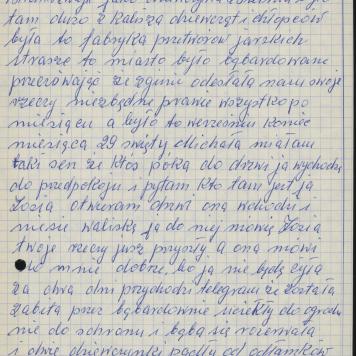 tam dużo z Kalisza dziewcząt i chłopców
była to fabryka przetworów jarskich
strasze to miasto było bąbardowane
przeczówając że zginie odesłała nam swoje
rzeczy niezbędne prawie wszystko po
miesiącu a było to wrzesień koniec
miesiąca 29 święty Michała miałam
taki sen że ktoś puka do drzwi ja wychodzę
do przedpokoju i pytam kto tam jest ja
Zosia otwieram drzwi ona wchodzi i
niesie waliskę ja do niej mówię Zosia
twoje rzeczy już przyszły a ona mówi
mnie dobrze bo ja nie będę żyła
za dwa dni przychodzi telegram że została
zabita przez bąbardownie uciekły do ogrodu
nie do schronu i bąba się rozerwała
i dwie dziewczynki padły od odłamków